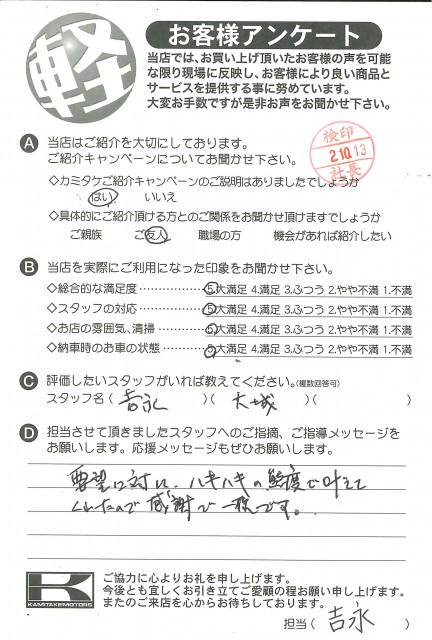 軽
お客様アンケート
当店では、お買い上げ頂いたお客様の声を可能
な限り現場に反映し、お客様により良い商品と
サービスを提供する事に努めています。
大変お手数ですが是非お声をお聞かせ下さい。
検印
2.10.13
社長
A 当店はご紹介を大切にしております。
ご紹介キャンペーンについてお聞かせ下さい。
◇カミタケご紹介キャンペーンのご説明はありましたでしょうか
はい いいえ
◇具体的にご紹介頂ける方とのご関係をお聞かせ頂けますでしょうか
ご親族 ご友人 職場の方 機会があれば紹介したい
B 当店を実際にご利用になった印象をお聞かせ下さい。
◇総合的な満足度……………5.大満足 4.満足 3.ふつう 2.やや不満 1.不満
◇スタッフの対応……………5.大満足 4.満足 3.ふつう 2.やや不満 1.不満
◇お店の雰囲気、清掃………5.大満足 4.満足 3.ふつう 2.やや不満 1.不満
◇納車時のお車の状態………5.大満足 4.満足 3.ふつう 2.やや不満 1.不満
C 評価したいスタッフがいれば教えてください。(複数回答可)
スタッフ名( 吉永 )( 大城 )( )
D 担当させて頂きましたスタッフへのご指摘、ご指導メッセージを
お願いします。応援メッセージもぜひお願いします。
要望に対し、ハキハキの態度で叶えて
くれたので感謝で一杯です。
K
KAMITAKEMOTORS
ご協力に心よりお礼を申し上げます。
今後とも宜しくお引き立てご愛顧の程お願い申し上げます。
またのご来店を心からお待ちしております。
担当( 吉永